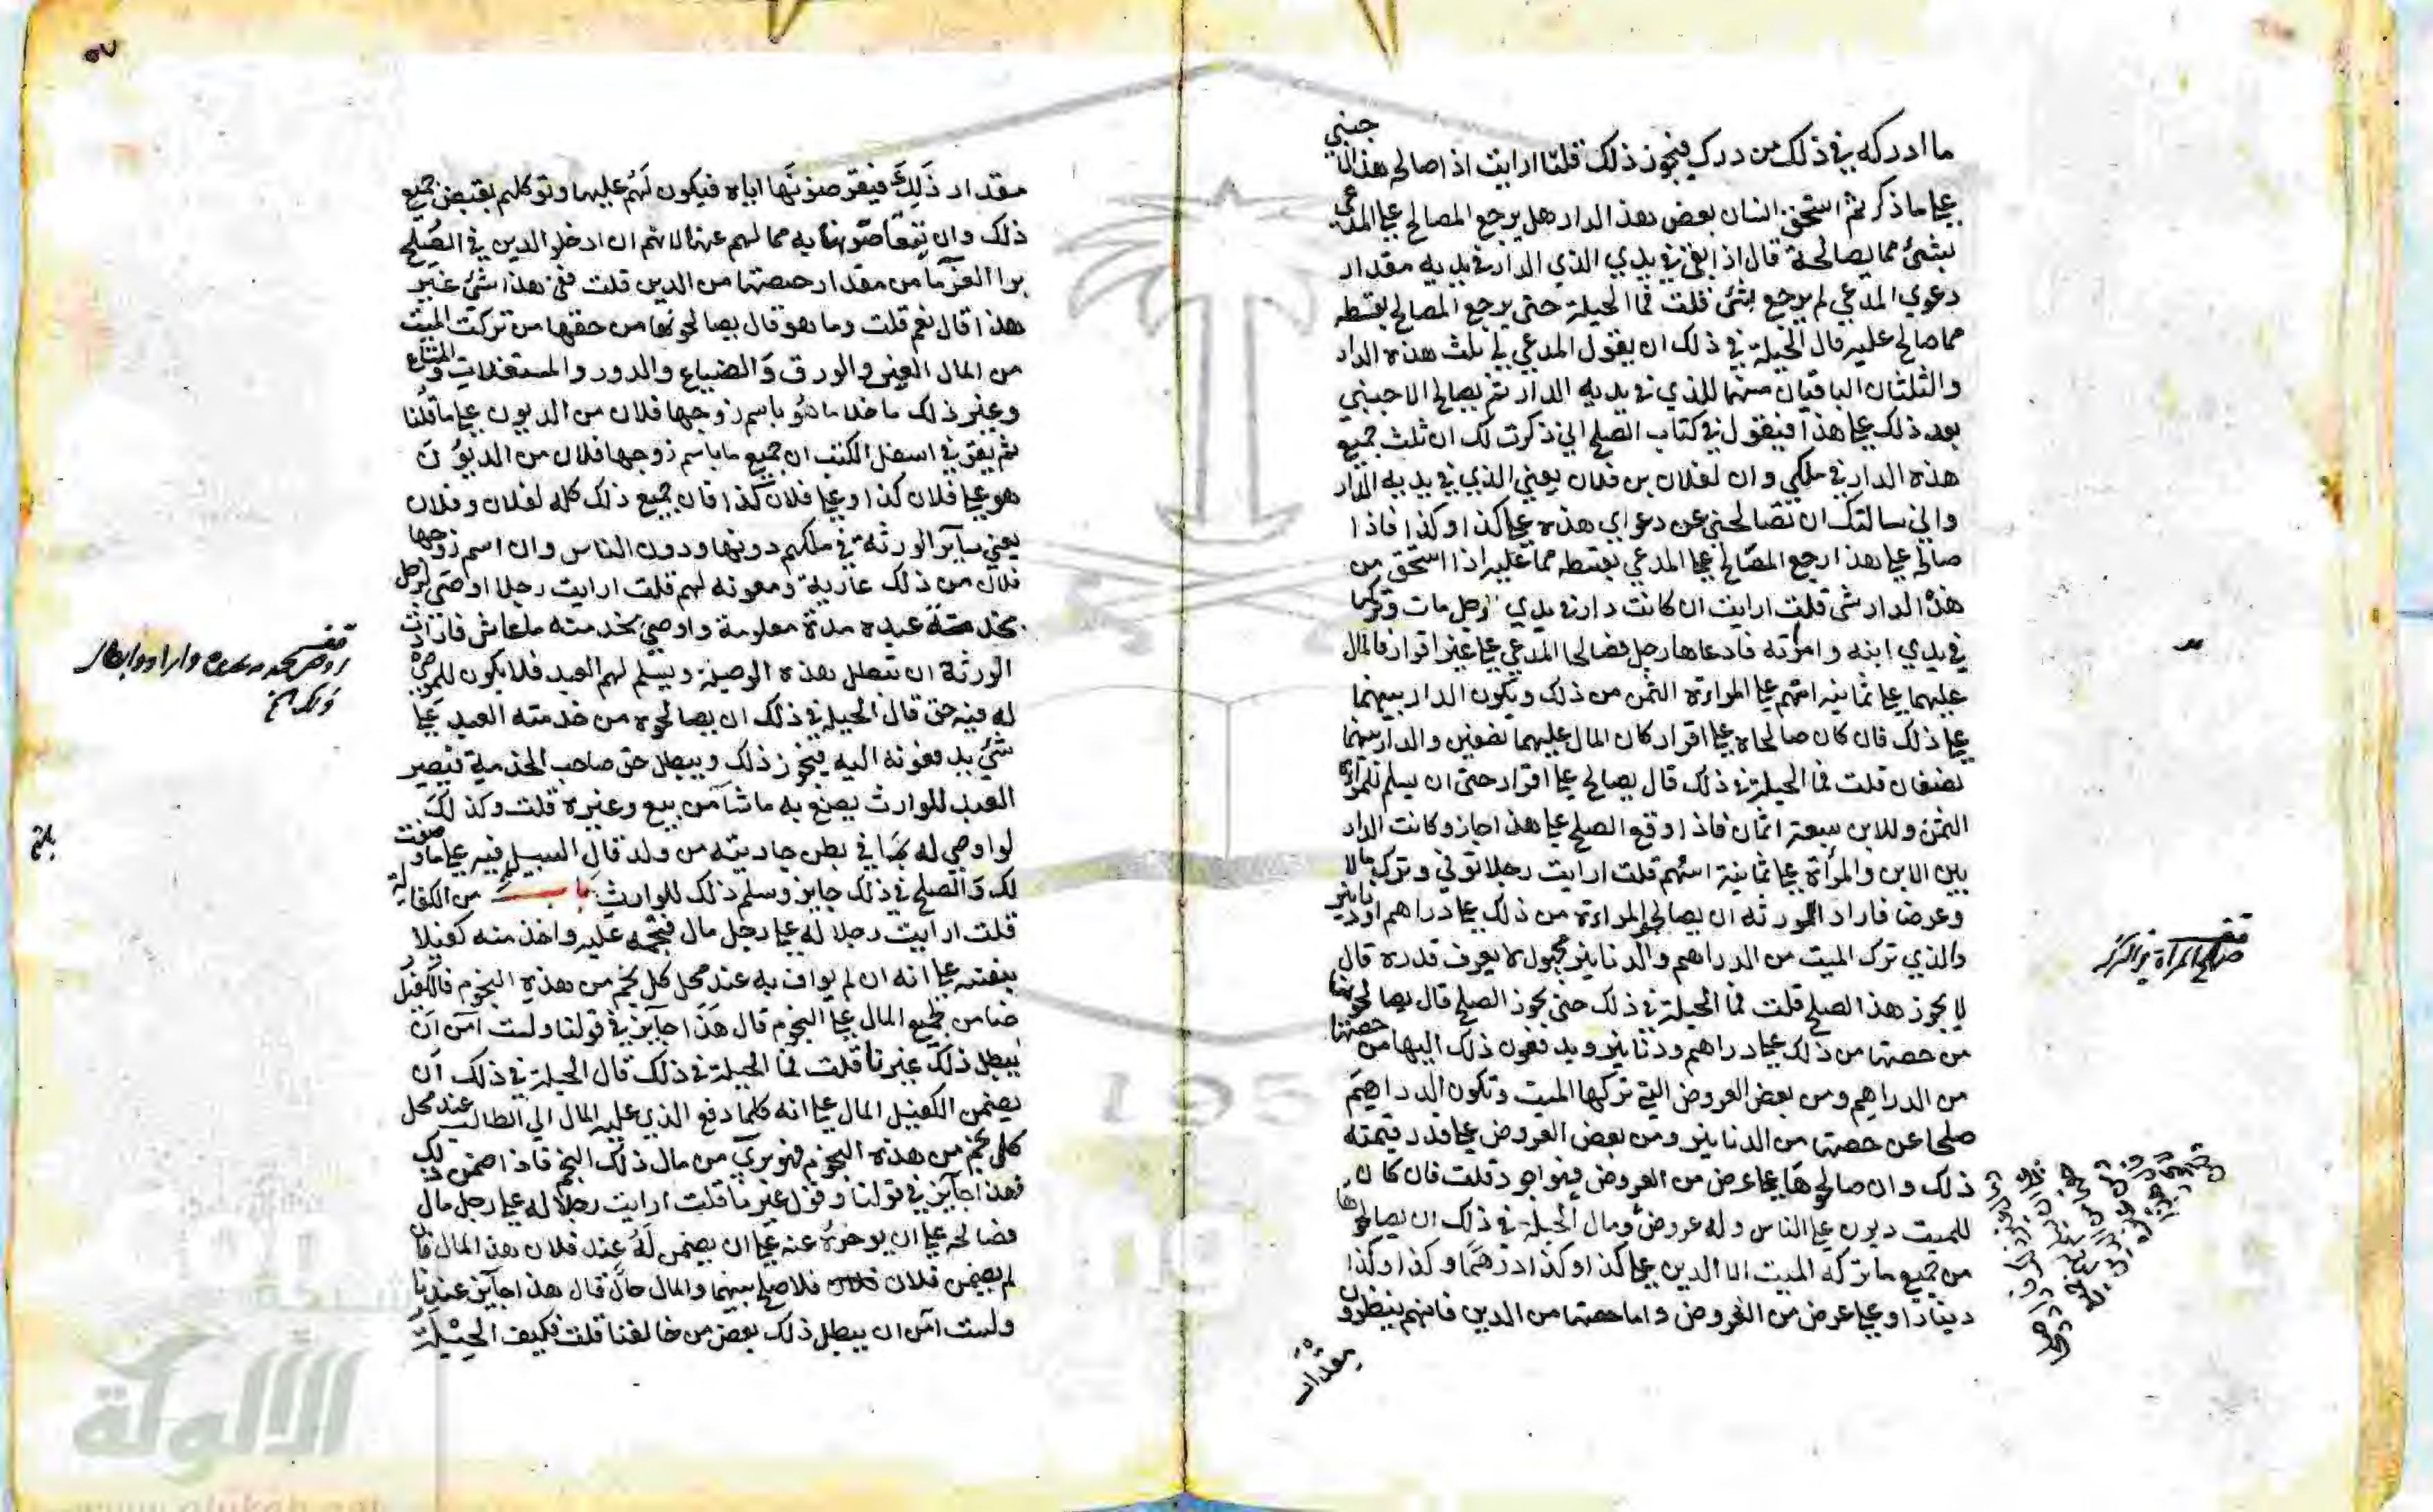 ما ادركه في ذلك من درك فيجوز ذلك قلت ارايت اذا صالح هذا الاجنبي
علي ما ذكر ثم استحق انسان بعض هذ الدار هل يرجع المصالح علي المدعي
بشئ مما يصالحه قال اذا بقي في يدي الذي الدار في يديه مقدار
دعوي المدعي لم يرجع بشئ قلت فما الحيلة حتى يرجع المصالح بقسطه
مما صالح عليه قال الحيلة في ذلك ان يقول المدعي لي ثلث هذه الدار
والثلثان الباقيان منها للذي في يديه الدار ثم يصالح الاجنبي
بعد ذلك علي هذا فيقول في كتاب الصلح اني ذكرت لك ان ثلث جميع
هذه الدار في ملكي وان لفلان بن فلان يعني الذي في يديه الدار
واني سالتك ان تصالحني عن دعواي هذه علي كذا وكذا فاذا
صالح علي هذا رجع المصالح علي المدعي بقسطه مما عليه اذا استحق من
هذه الدار شئ قلت ارايت ان كانت دار في يدي رجل مات وتركها
في يدي ابنه وامراته فادعاها رجل فصالحا المدعي علي غير اقرار فالمال
عليهما علي ثمانية اسهم علي المراة الثمن من ذلك وتكون الدار بينهما
علي ذلك فان كان صالحاه علي اقرار كان المال عليهما نصفين والدار بينهما
نصفان قلت فما الحيلة في ذلك قال يصالح علي اقرار حتى ان يسلم للمراة
الثمن وللابن سبعة اثمان فاذا وقع الصلح علي هذا جاز وكانت الدار
بين الابن والمرأة علي ثمانية اسهم قلت ارايت رجلا توفي وترك مالا
وعرضا فاراد الورثه ان يصالحوا المراة من ذلك علي دراهم او دنانير
والذي ترك الميت من الدراهم والدنانير مجهول لا يعرف قدره قال
لا يجوز هذا الصلح قلت فما الحيلة في ذلك حتى يجوز الصلح قال يصالحونها
من حصتها من ذلك علي دراهم ودنانير ويدفعون ذلك اليها من حصتها
من الدراهم ومن بعض العروض التي تركها الميت وتكون الدراهم
صلحا عن حصتها من الدنانير ومن بعض العروض علي قدر قيمته
ذلك وان صالحوها علي عرض من العروض فهو اجود قلت فان كان
للميت ديون علي الناس وله عروض ومال الحيلة في ذلك ان يصالحوها
من جميع ما تركه الميت الا الدين علي كذا وكذا درهما وكذا وكذا
دينارا وعلي عرض من العروض واما حصتها من الدين فانهم ينظرون
مقدار
صلح المراة من التركة
٥٧
مقدار ذلك فيقرضونها اياه فيكون لهم عليها وتوكلهم بقبض جميع
ذلك وان يتقاضونها به مما لهم عنها لانهم ان ادخلو الدين في الصلح
برا الغرما من مقدار حصتها من الدين قلت ففي هذا شئ غير
هذا قال نعم قلت وما هو قال يصالحونها من حقها من تركت الميت
من المال العين والورق والضياع والدور والمستغلات والمتاع
وغير ذلك ما خلا ما هو باسم زوجها فلان من الديون علي ما قلنا
ثم يقر في اسفل الكتب ان جميع ما باسم زوجها فلان من الديون
هو علي فلان كذا وعلي فلان كذا فان جميع ذلك كله لفلان وفلان
يعني سآئر الورثة في ملكهم دونها ودون الناس وان اسم زوجها
فلان من ذلك عارية ومعونه لهم قلت ارايت رجلا اوصي لرجل
بخدمته عبده مدة معلومة واوصي بخدمته ما عاش فارادت
الورثة ان تبطل هذه الوصية ويسلم لهم العبد فلا يكون للموصي
له فيه حق قال الحيلة في ذلك ان يصالحوه من خدمته العبد علي
شئ يدفعونه اليه فيجوز ذلك ويبطل حق صاحب الخدمة فيصير
العبد للوارث يصنع به ما شا من بيع وغيره قلت وكذلك
لو اوصي له بما في بطن جاريته من ولد قال السبيل فيه علي ما وصفت
لك والصلح في ذلك جايز وسلم ذلك للوارث باب من الكفالة
قلت ارايت رجلا له علي رجل مال فنجمه عليه واخذ منه كفيلا
بنفسه علي انه ان لم يواف به عند محل كل نجم من هذه النجوم فالكفيل
ضامن لجميع المال علي النجوم قال هذا جايز في قولنا ولست آمن ان
يبطل ذلك غيرنا قلت فما الحيلة في ذلك قال الحيلة في ذلك ان
يضمن الكفيل المال علي انه كلما دفع الذي عليه المال الي الطالب عند محل
كل نجم من هذه النجوم فهو بري من مال ذلك النجم فاذا ضمن ذلك
فهذا جايز في قولنا وقول غيرنا قلت ارايت رجلا له علي رجل مال
فصالحه علي ان يوخره عنه علي ان يضمن له عند فلان هذ المال فان
لم يضمن فلان فلا صلح بينهما والمال حال قال هذا جآيز عندنا
ولست آمن ان يبطل ذلك بعض من خالفنا قلت فكيف الحيلة
بلغ
شبكة
الألوكة